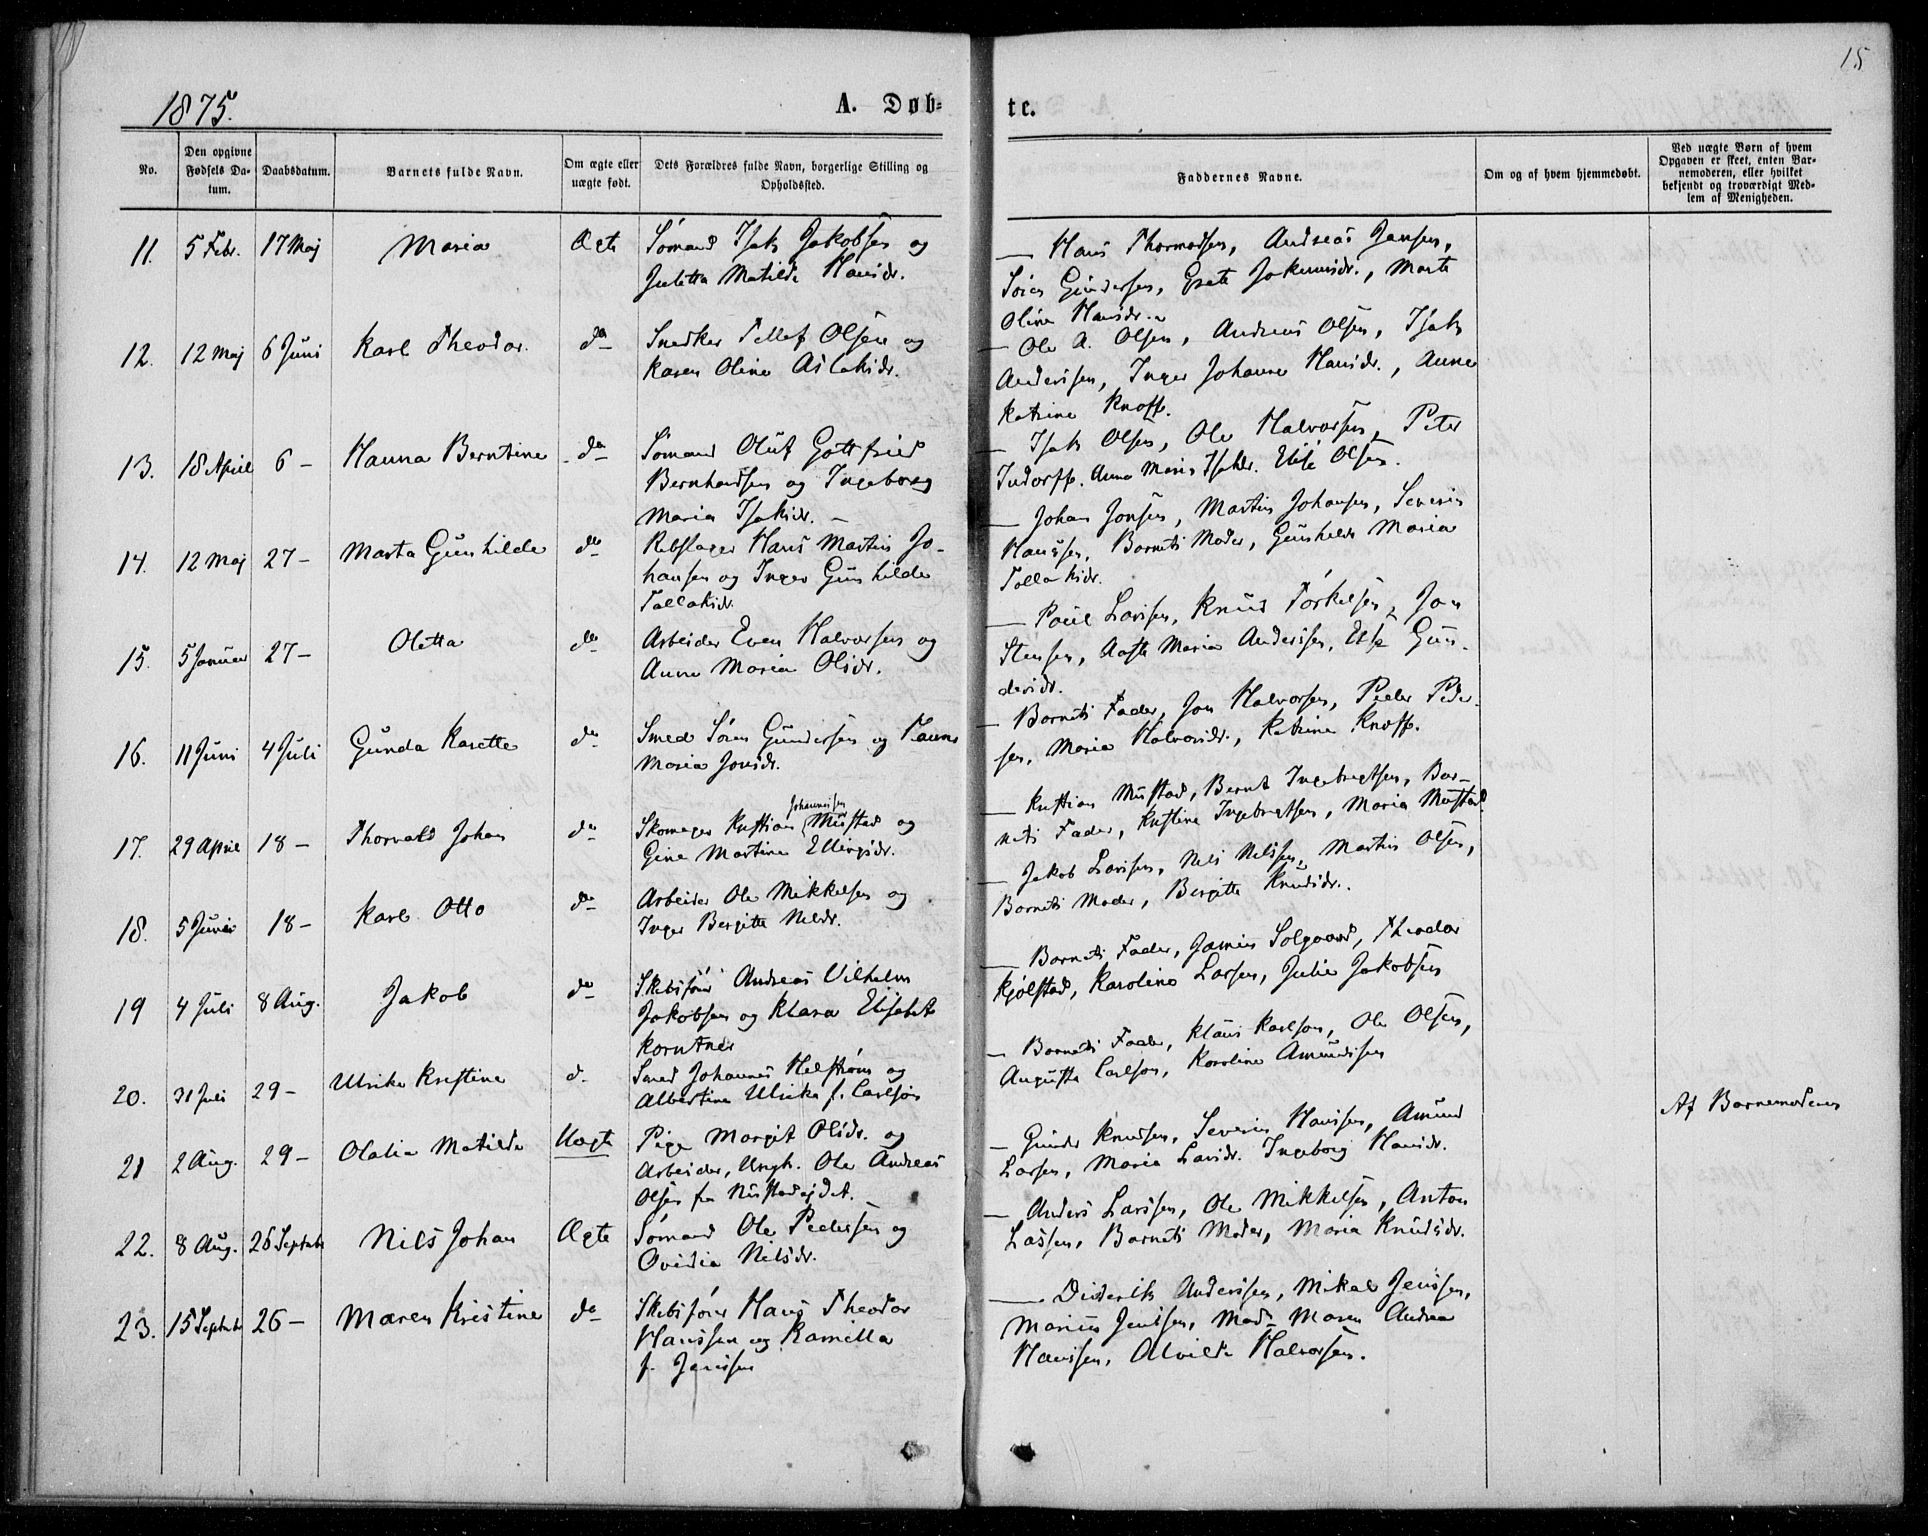 15
1875.
A. Døb-
te.
No.
Den opgivne
Fødsels Da-
tum.
Daabsdatum.
Barnets fulde Navn.
Om ægte eller
uægte født.
Dets Forældres fulde Navn, borgerlige Stilling og
Opholdssted.
Faddernes Navne.
Om og af hvem hjemmedøbt.
Ved uægte Børn af hvem
Opgaven er skeet, enten Bar-
nemoderen, eller hvilket
bekjendt og troværdigt Med-
lem af Menigheden.
11. 5 Febr. 17 Maj Maria Ægte Sømand Isak Jakobsen og
Juletta Matilde Hansdr.
— Hans Thormodsen, Andreas Jansen,
Sören Gundersen, Grete Jokumsdr., Marte
Oline Hansdr.
12. 12 Maj 6 Juni Karl Theodor do Snedker Tellef Olsen og
Karen Oline Aslaksdr.
— Ole A. Olsen, Andreas Olsen, Isak
Anderssen, Inger Johanne Hansdr., Anne
Katrine Knoff.
13. 18 April 6 – Hanna Berntine do Sømand Oluf Gottfried
Bernhardsen og Ingeborg
Maria Isaksdr.
— Isak Olsen, Ole Halvorsen, Peter
Indorff. Anne Maria Isaksdr. Elise Olsen.
14. 12 Maj 27 – Marta Gunhilde do Rebslager Hans Martin Jo-
hansen og Inger Gunhilde
Tallaksdr.
— Johan Jonsen, Martin Johansen, Severin
Hanssen, Barnets Moder, Gunhilde Maria
Tallaksdr.
15. 5 Januar 27 – Oletta do Arbeider Even Halvorsen og
Anne Maria Olsdr.
— Poul Larssen, Knud Torkelsen, Jon
Stensen, Aaste Maria Anderssen, Else Gun-
dersdr.
16. 11 Juni 4 Juli Gunda Karette do Smed Sören Gundersen og
Maria Jonsdr.
— Barnets Fader, Jon Halvorsen, Peder Peder-
sen, Maria Halvorsdr., Katrine Knoff.
17. 29 April 18 – Thorvald Johan do Skomager Kristian Johannessen Mustad og
Gine Martine Ellingsdr.
— Kristian Mustad, Bernt Ingebregtsen, Bar-
nets Fader, Kristine Ingebregtsen, Maria Mustad
18. 5 Juni 18 – Karl Otto do Arbeider Ole Mikkelsen og
Inger Bergitte Nilsdr.
— Jakob Larssen, Nils Nilssen, Martin Olsen,
Barnets Moder, Bergitte Knudsdr.
19 4 Juli 8 Aug. Jakob do Skibsfører Andreas Vilhelm
Jakobsen og Klara Elisabet
Korntner
— Barnets Fader, Solgaard, Theodor
Kjølstad, Karoline Larsen, Julie Jakobsen
20. 31 Juli 29 – Ulrika Kristine d. Smed Johannes Helstrøm og
Albertine Ulrika f. Carlson
— Barnets Fader, Klaus Karlson, Ole Olsen,
Augusta Carlson, Karoline Amundsen
21 2 Aug. 29 – Olalia Matilde Uægte Pige Margit Olsdr. og
Arbeider, Ungk. Ole Andreas
Olsen fra
— Gunder Knudsen, Severin Hanssen, Amund
Larsen, Maria Larsdr. Ingeborg Hansdr.
Af Barnemoderen
22. 8 Aug. 26 Septbr Nils Johan Ægte Sømand Ole Pedersen og
Ovidia Nilsdr.
— Anders Larssen, Ole Mikkelsen, Anton
Lassen, Barnets Moder, Maria Knudsdr.
23. 15 Septbr 26 – Maren Kristine do Skibsfører Hans Theodor
Hanssen og Kamilla
f. Jenssen
— Diderik Anderssen, Mikal Jenssen,
Marius Jenssen, Mad. Maren Andrea
Hanssen, Alvilde Halvorsen.